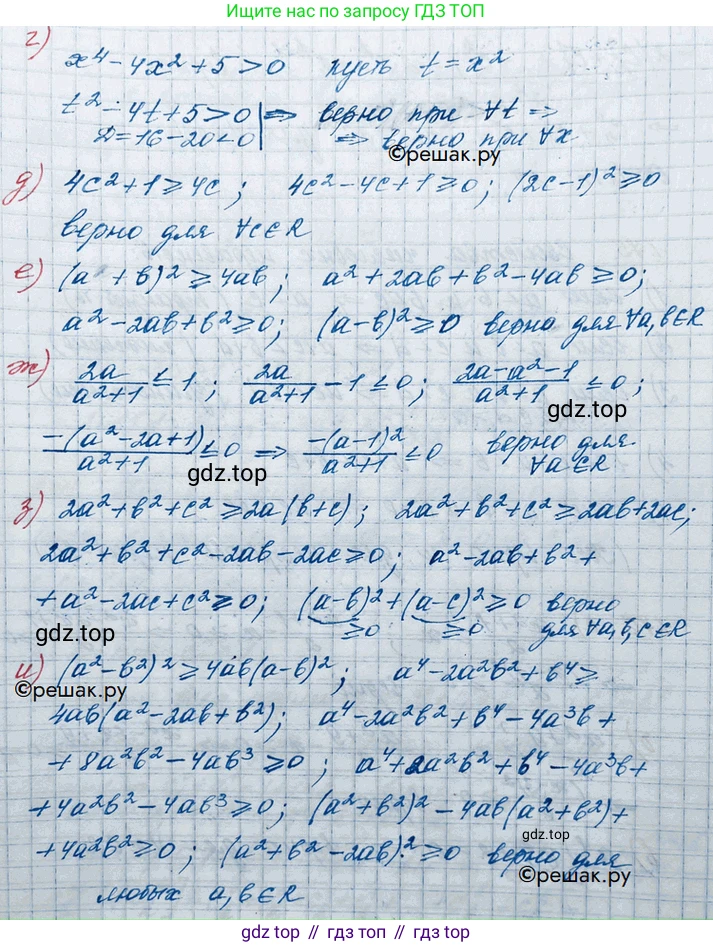 Ищите нас по запросу ГДЗ ТОП
г)
x⁴ - 4x² + 5 > 0 пусть t = x²
t² - 4t + 5 > 0 | ⇒ верно при ∀t ⇒
D = 16 - 20 < 0 | ⇒ верно при ∀x
©решак.ру
д) 4c² + 1 ≥ 4c ; 4c² - 4c + 1 ≥ 0 ; (2c - 1)² ≥ 0
верно для ∀c ∈ R
е) (a + b)² ≥ 4ab ; a² + 2ab + b² - 4ab ≥ 0 ;
a² - 2ab + b² ≥ 0 ; (a - b)² ≥ 0 верно для ∀a, b ∈ R
ж) 2a/(a² + 1) ≤ 1 ; 2a/(a² + 1) - 1 ≤ 0 ; (2a - a² - 1)/(a² + 1) ≤ 0 ;
gdz.top
-(a² - 2a + 1)/(a² + 1) ≤ 0 ⇒ -(a - 1)²/(a² + 1) ≤ 0 верно для
∀a ∈ R
gdz.top
з) 2a² + b² + c² ≥ 2a(b + c) ; 2a² + b² + c² ≥ 2ab + 2ac ;
2a² + b² + c² - 2ab - 2ac ≥ 0 ; a² - 2ab + b² +
+ a² - 2ac + c² ≥ 0 ; (a - b)² + (a - c)² ≥ 0 верно
≥0 ≥0 для ∀a, b, c ∈ R
gdz.top
и) (a² - b²)² ≥ 4ab(a - b)² ; a⁴ - 2a²b² + b⁴ ≥
©решак.ру
4ab(a² - 2ab + b²) ; a⁴ - 2a²b² + b⁴ - 4a³b +
+ 8a²b² - 4ab³ ≥ 0 ; a⁴ + 2a²b² + b⁴ - 4a³b +
+ 4a²b² - 4ab³ ≥ 0 ; (a² + b²)² - 4ab(a² + b²) +
gdz.top
+ 4a²b² ≥ 0 ; (a² + b² - 2ab)² ≥ 0 верно для
©решак.ру
любых a, b ∈ R
gdz top // гдз топ // gdz.top